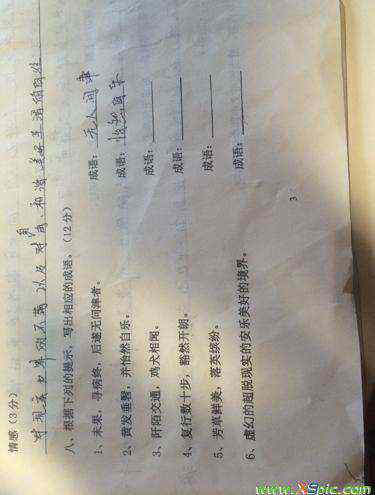 情感（3分）
对现实世界的不满以及对自由、和谐美好生活的向往
八、根据下列的提示，写出相应的成语。（12分）
1、未果，寻病终，后遂无问津者。 成语：无人问津
2、黄发垂髫，并怡然自乐。 成语：怡然自乐
3、阡陌交通，鸡犬相闻。 成语：
4、复行数十步，豁然开朗。 成语：
5、芳草鲜美，落英缤纷。 成语：
6、虚幻的超脱现实的安乐美好的境界。 成语：
3
www.XSpic.com